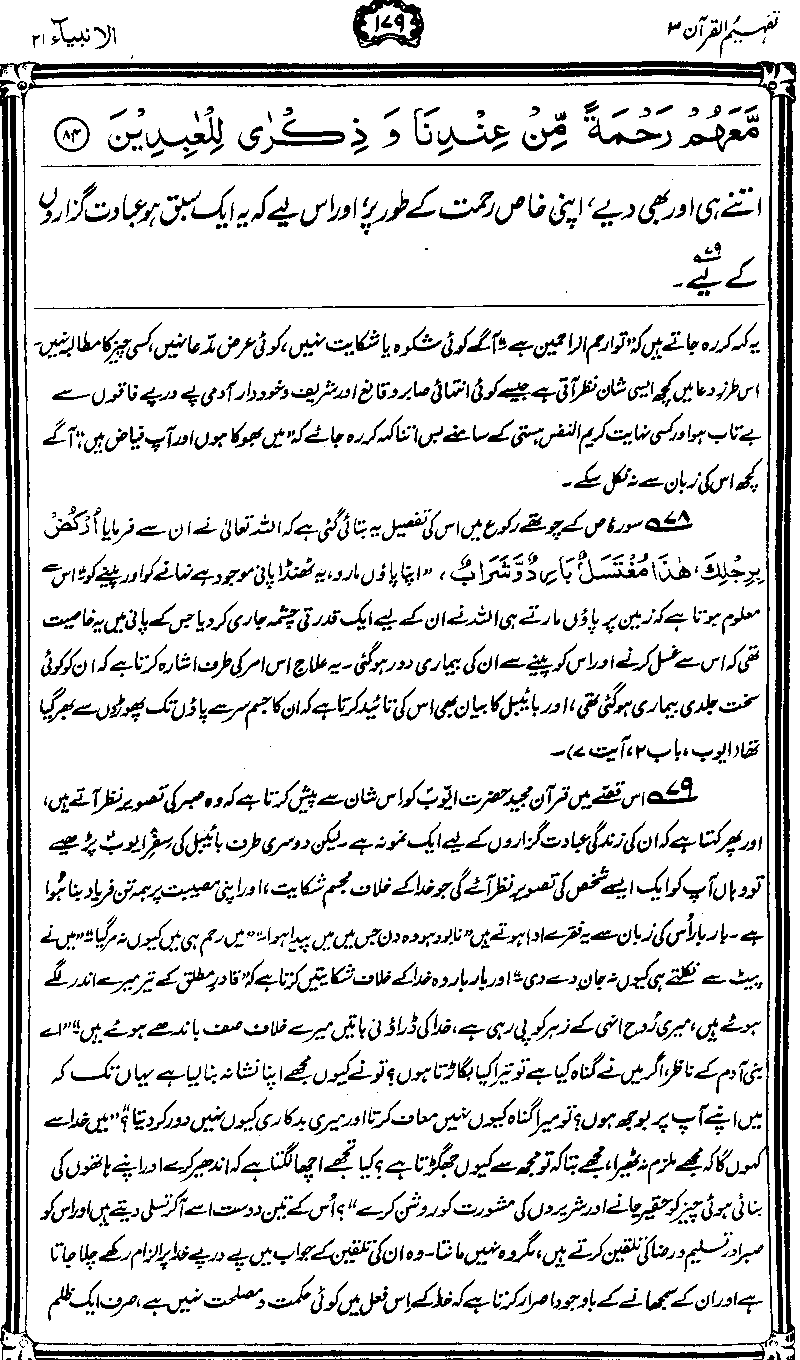 تفہیم القرآن ۳
۱۷۹
الانبیآء ۲۱
مَّعَهُمْ رَحْمَةً مِّنْ عِنْدِنَا وَ ذِكْرٰى لِلْعٰبِدِيْنَ ﴿۸۴﴾
اتنے ہی اور بھی دیے، اپنی خاص رحمت کے طور پر، اور اس لیے کہ یہ ایک سبق ہو عبادت گزاروں
کے لیے۔ ۷۹
یہ کہہ کر رہ جاتے ہیں کہ ”تو ارحم الراحمین ہے“ آگے کوئی شکوہ یا شکایت نہیں، کوئی عرض مدعا نہیں، کسی چیز کا مطالبہ نہیں۔
اس طرزِ دعا میں کچھ ایسی شان نظر آتی ہے جیسے کوئی انتہائی صابر و قانع اور شریف و خوددار آدمی پے در پے فاقوں سے
بے تاب ہو اور کسی نہایت کریم النفس ہستی کے سامنے بس اتنا کہہ کر رہ جائے کہ ”میں بھوکا ہوں اور آپ فیاض ہیں“ آگے
کچھ اس کی زبان سے نہ نکل سکے۔
۷۸ سورۂ ص کے چوتھے رکوع میں اس کی تفصیل یہ بتائی گئی ہے کہ اللہ تعالیٰ نے ان سے فرمایا اُرْكُضْ
بِرِجْلِكَ، هٰذَا مُغْتَسَلٌ بَارِدٌ وَّشَرَابٌ، ”اپنا پاؤں مارو، یہ ٹھنڈا پانی موجود ہے نہانے کو اور پینے کو“ اس سے
معلوم ہوتا ہے کہ زمین پر پاؤں مارتے ہی اللہ نے ان کے لیے ایک قدرتی چشمہ جاری کر دیا جس کے پانی میں یہ خاصیت
تھی کہ اس سے غسل کرنے اور اس کو پینے سے ان کی بیماری دور ہو گئی۔ یہ علاج اس امر کی طرف اشارہ کرتا ہے کہ ان کو کوئی
سخت جلدی بیماری ہو گئی تھی، اور بائیبل کا بیان بھی اس کی تائید کرتا ہے کہ ان کا جسم سر سے پاؤں تک پھوڑوں سے بھر گیا
تھا (ایوب، باب ۲، آیت ۷)۔
۷۹ اس قصے میں قرآن مجید حضرت ایوبؑ کو اس شان سے پیش کرتا ہے کہ وہ صبر کی تصویر نظر آتے ہیں،
اور پھر کہتا ہے کہ ان کی زندگی عبادت گزاروں کے لیے ایک نمونہ ہے۔ لیکن دوسری طرف بائیبل کی سفرِ ایوب پڑھیے
تو وہاں آپ کو ایک ایسے شخص کی تصویر نظر آئے گی جو خدا کے خلاف مجسم شکایت، اور اپنی مصیبت پر ہمہ تن فریاد بنا ہوا
ہے۔ بار بار اُس کی زبان سے یہ فقرے ادا ہوتے ہیں ”نابود ہو وہ دن جس میں میں پیدا ہوا“ ”میں رحم ہی میں کیوں نہ مر گیا“ ”میں نے
پیٹ سے نکلتے ہی کیوں نہ جان دے دی“ اور بار بار وہ خدا کے خلاف شکایتیں کرتا ہے کہ ”قادرِ مطلق کے تیر میرے اندر لگے
ہوئے ہیں، میری رُوح انہی کے زہر کو پی رہی ہے، خدا کی ڈراؤنی باتیں میرے خلاف صف باندھے ہوئے ہیں“ ”اے
بنی آدم کے ناظر، اگر میں نے گناہ کیا ہے تو تیرا کیا بگاڑتا ہوں؟ تو نے کیوں مجھے اپنا نشانہ بنا لیا ہے یہاں تک کہ
میں اپنے آپ پر بوجھ ہوں؟ تو میرا گناہ کیوں نہیں معاف کرتا اور میری بدکاری کیوں نہیں دور کر دیتا؟“ ”میں خدا سے
کہوں گا کہ مجھے ملزم نہ ٹھیرا، مجھے بتا کہ تو مجھ سے کیوں جھگڑتا ہے؟ کیا تجھے اچھا لگتا ہے کہ اندھیر کرے اور اپنے ہاتھوں کی
بنائی ہوئی چیز کو حقیر جانے اور شریروں کی مشورت کو روشن کرے“؟ اُس کے تین دوست اسے آکر تسلی دیتے ہیں اور اس کو
صبر اور تسلیم و رضا کی تلقین کرتے ہیں، مگر وہ نہیں مانتا۔ وہ ان کی تلقین کے جواب میں پے در پے خدا پر الزام رکھے چلا جاتا
ہے اور ان کے سمجھانے کے باوجود اصرار کرتا ہے کہ خدا کے اِس فعل میں کوئی حکمت و مصلحت نہیں ہے، صرف ایک ظلم